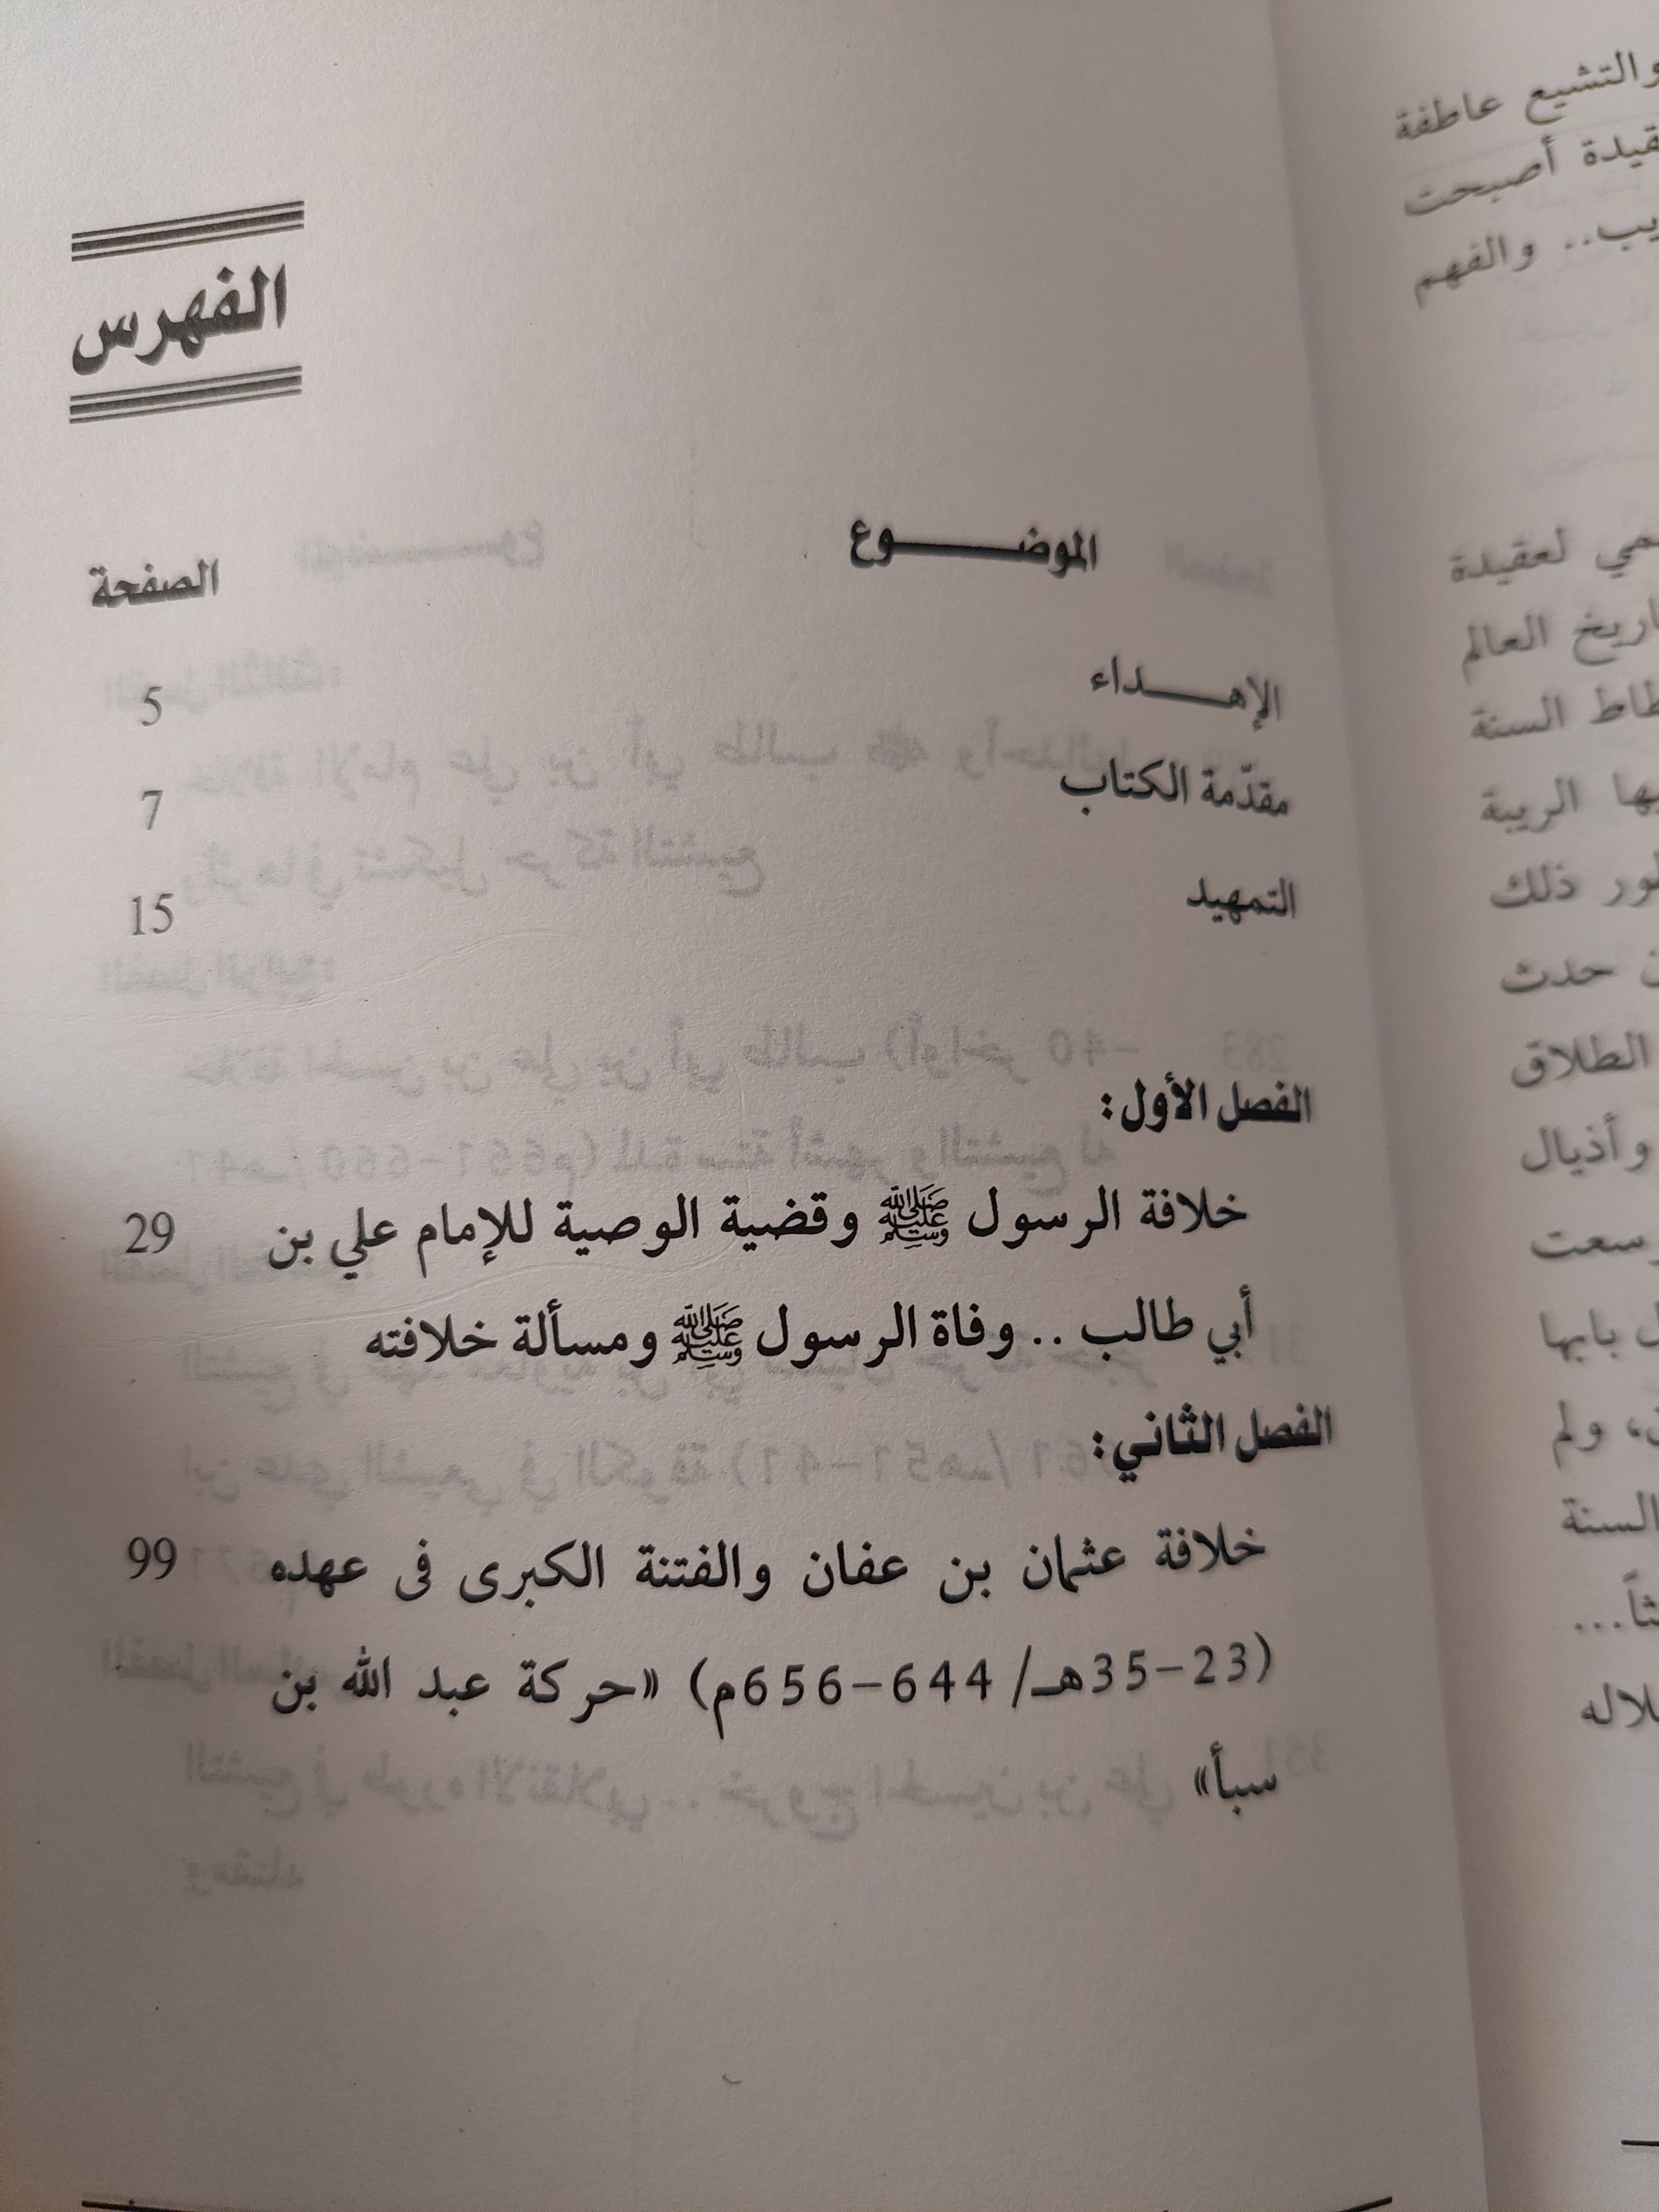 والتشيع عاطفة
أصبحت
والفهم
لعقيدة
العالم
السنة
الريبة
ذلك
حدث
الطلاق
وأذيال
بابها
ولم
السنة
الفهرس
الموضـــــوع الصفحة
الإهـــداء 5
مقدّمة الكتاب 7
التمهيد 15
الفصل الأول:
خلافة الرسول ﷺ وقضية الوصية للإمام علي بن 29
أبي طالب .. وفاة الرسول ﷺ ومسألة خلافته
الفصل الثاني:
خلافة عثمان بن عفان والفتنة الكبرى فى عهده 99
(23-35هـ/ 644-656م) «حركة عبد الله بن
سبأ»